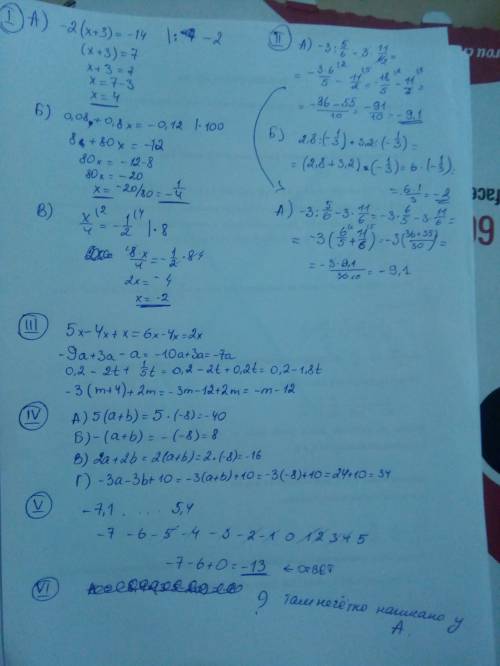 I А) -2(x+3) = -14 |: -2
(x+3) = 7
x+3 = 7
x = 7-3
x = 4
Б) 0,08 + 0,8x = -0,12 |·100
8 + 80x = -12
80x = -12-8
80x = -20
x = -20/80 = -1/4
В) x/4 = -1/2 |·8
8x/4 = -1/2·8
2x = -4
x = -2
II А) -3:5/6 - 3·11/6 =
= -3·6/5 - 11/2 = -18/5 - 11/2 =
= -36-55/10 = -91/10 = -9,1
Б) 2,8·(-1/3) + 3,2·(-1/3) =
= (2,8+3,2)·(-1/3) = 6·(-1/3) =
= -6·1/3 = -2
А) -3:5/6 - 3·11/6 = -3·6/5 - 3·11/6 =
= -3(6/5 + 11/6) = -3(36+55/30) =
= -3·91/30 = -9,1
III 5x-4x+x = 6x-4x = 2x
-9a+3a-a = -10a+3a = -7a
0,2 - 2t + 1/5t = 0,2 - 2t + 0,2t = 0,2 - 1,8t
-3(m+4)+2m = -3m-12+2m = -m-12
IV А) 5(a+b) = 5·(-8) = -40
Б) -(a+b) = -(-8) = 8
В) 2a+2b = 2(a+b) = 2·(-8) = -16
Г) -3a-3b+10 = -3(a+b)+10 = -3(-8)+10 = 24+10 = 34
V -7,1 . . . . . 5,4
-7 -6 -5 -4 -3 -2 -1 0 1 2 3 4 5
-7-6+0 = -13 ← ответ
VI ? там нечётко написано у
А.